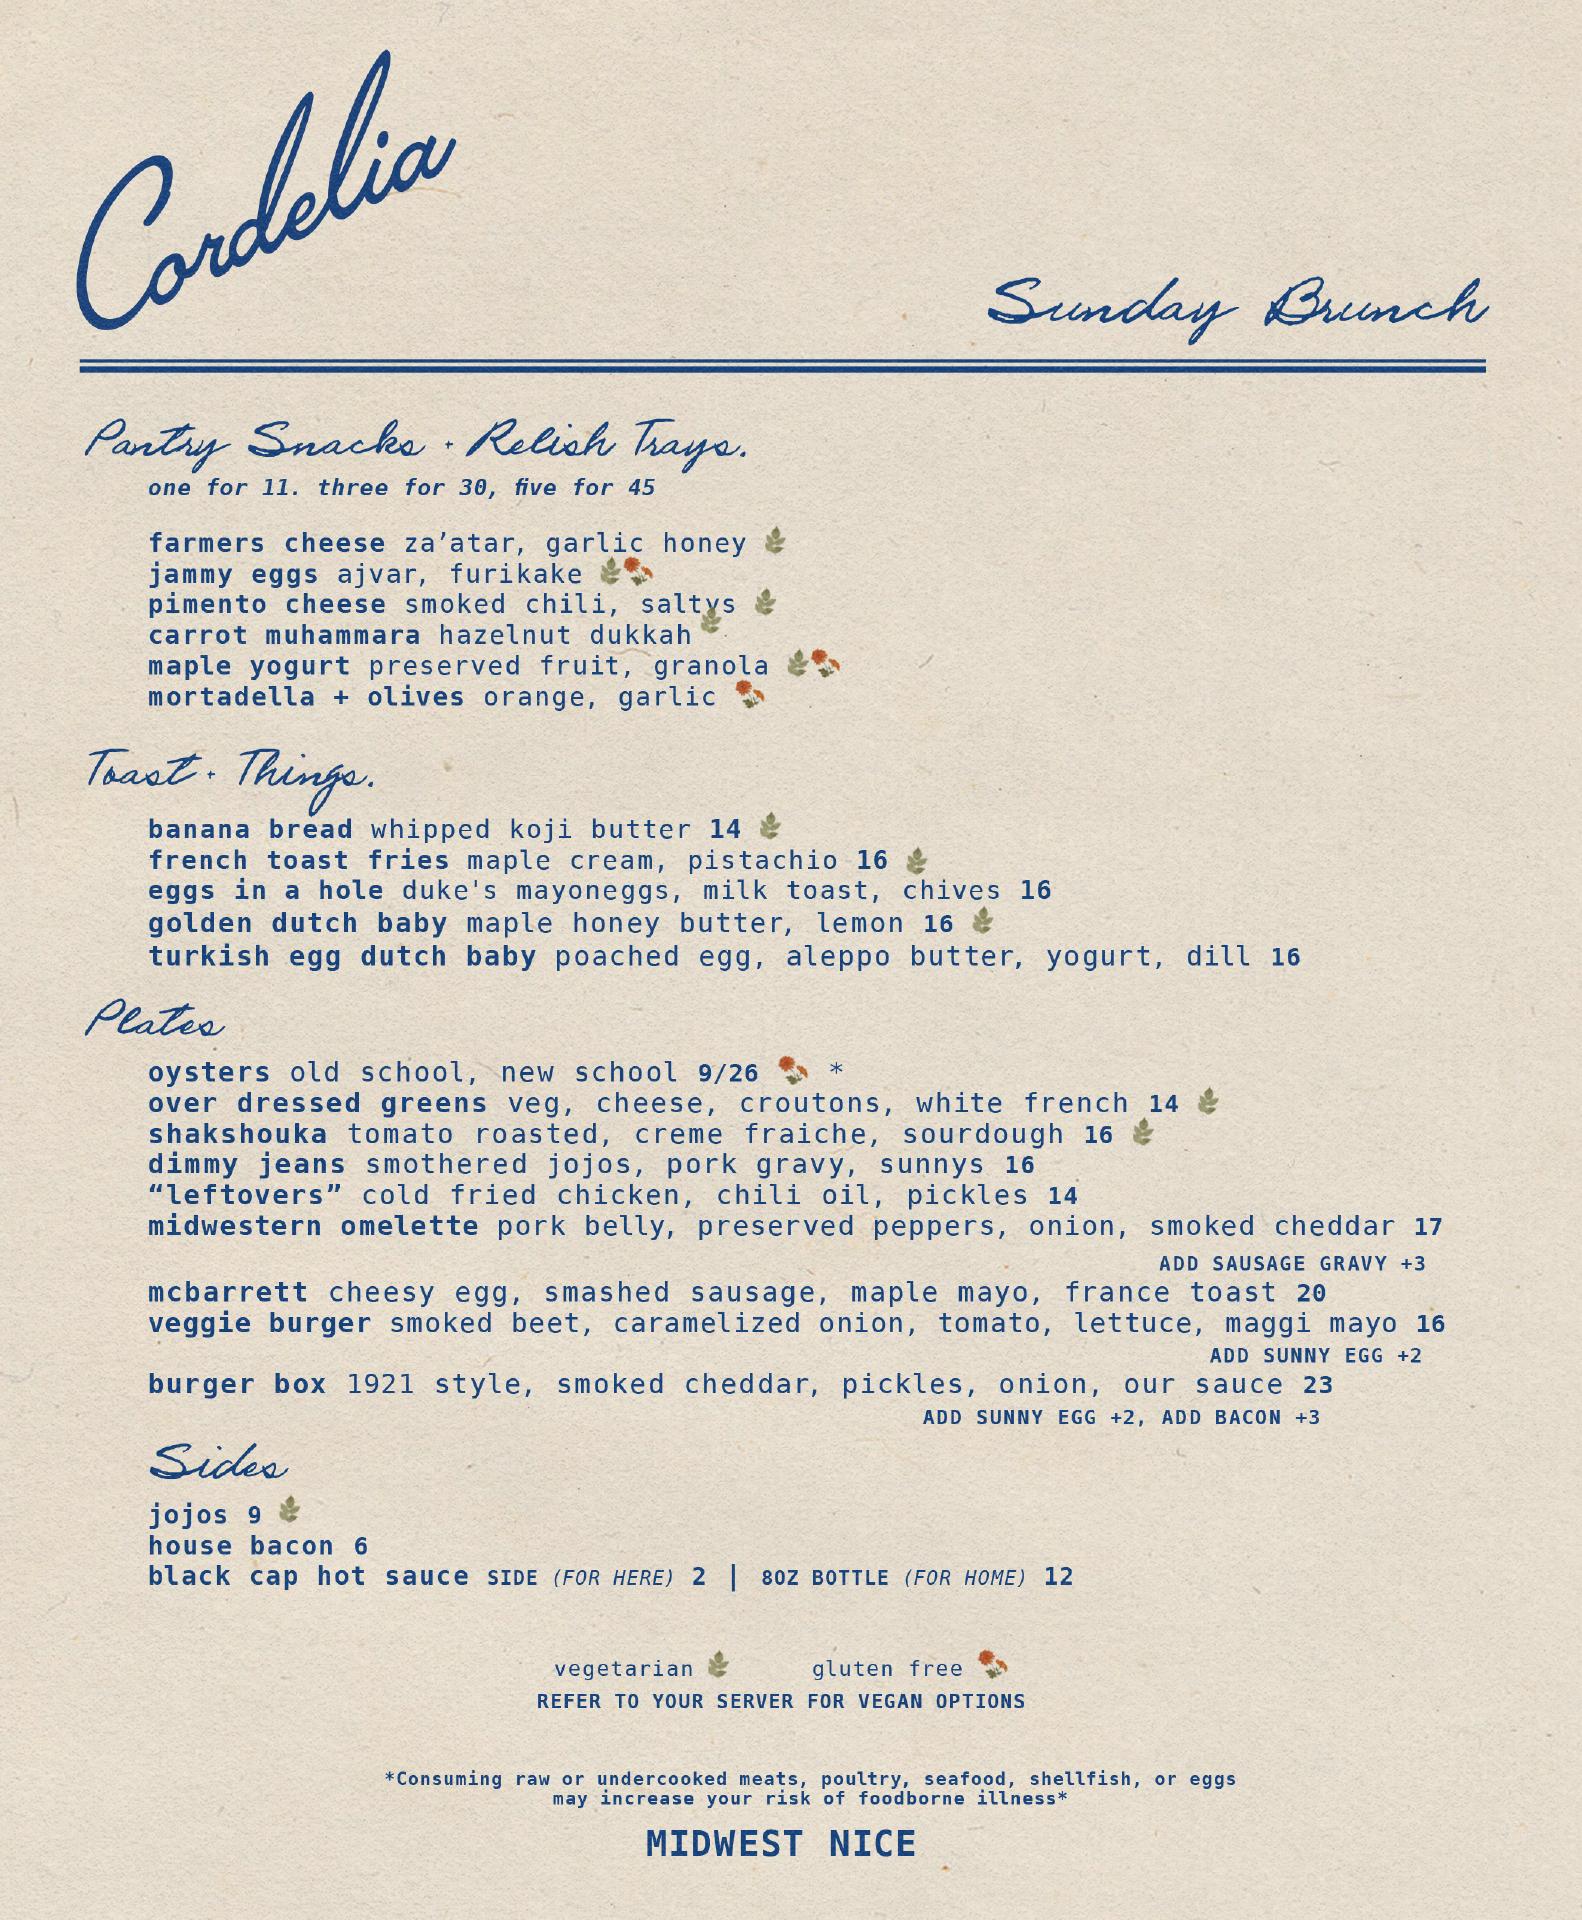 Cordelia
Sunday Brunch
Pantry Snacks + Relish Trays.
one for 11. three for 30, five for 45
farmers cheese za’atar, garlic honey
jammy eggs ajvar, furikake
pimento cheese smoked chili, saltys
carrot muhammara hazelnut dukkah
maple yogurt preserved fruit, granola
mortadella + olives orange, garlic
Toast + Things.
banana bread whipped koji butter 14
french toast fries maple cream, pistachio 16
eggs in a hole duke's mayoneggs, milk toast, chives 16
golden dutch baby maple honey butter, lemon 16
turkish egg dutch baby poached egg, aleppo butter, yogurt, dill 16
Plates
oysters old school, new school 9/26 *
over dressed greens veg, cheese, croutons, white french 14
shakshouka tomato roasted, creme fraiche, sourdough 16
dimmy jeans smothered jojos, pork gravy, sunnys 16
“leftovers” cold fried chicken, chili oil, pickles 14
midwestern omelette pork belly, preserved peppers, onion, smoked cheddar 17
ADD SAUSAGE GRAVY +3
mcbarrett cheesy egg, smashed sausage, maple mayo, france toast 20
veggie burger smoked beet, caramelized onion, tomato, lettuce, maggi mayo 16
ADD SUNNY EGG +2
burger box 1921 style, smoked cheddar, pickles, onion, our sauce 23
ADD SUNNY EGG +2, ADD BACON +3
Sides
jojos 9
house bacon 6
black cap hot sauce SIDE (FOR HERE) 2 | 8OZ BOTTLE (FOR HOME) 12
vegetarian gluten free
REFER TO YOUR SERVER FOR VEGAN OPTIONS
*Consuming raw or undercooked meats, poultry, seafood, shellfish, or eggs
may increase your risk of foodborne illness*
MIDWEST NICE